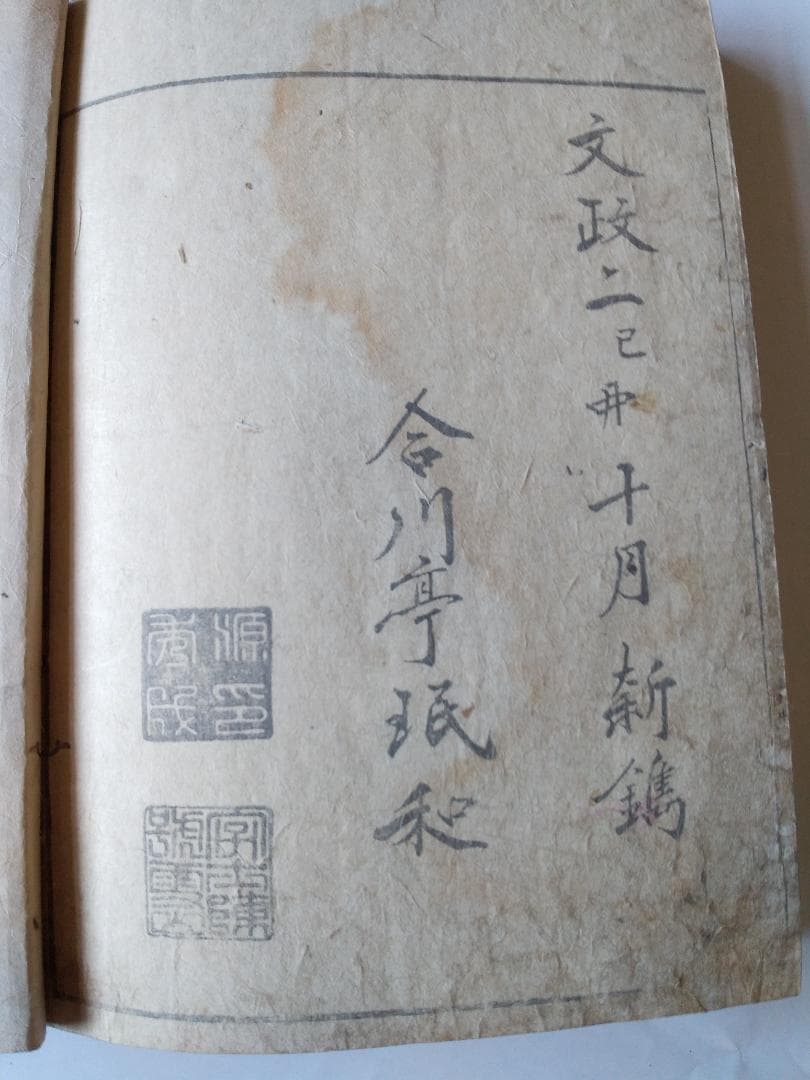 文政二己卯十月新鐫
合川亭珉和
源印